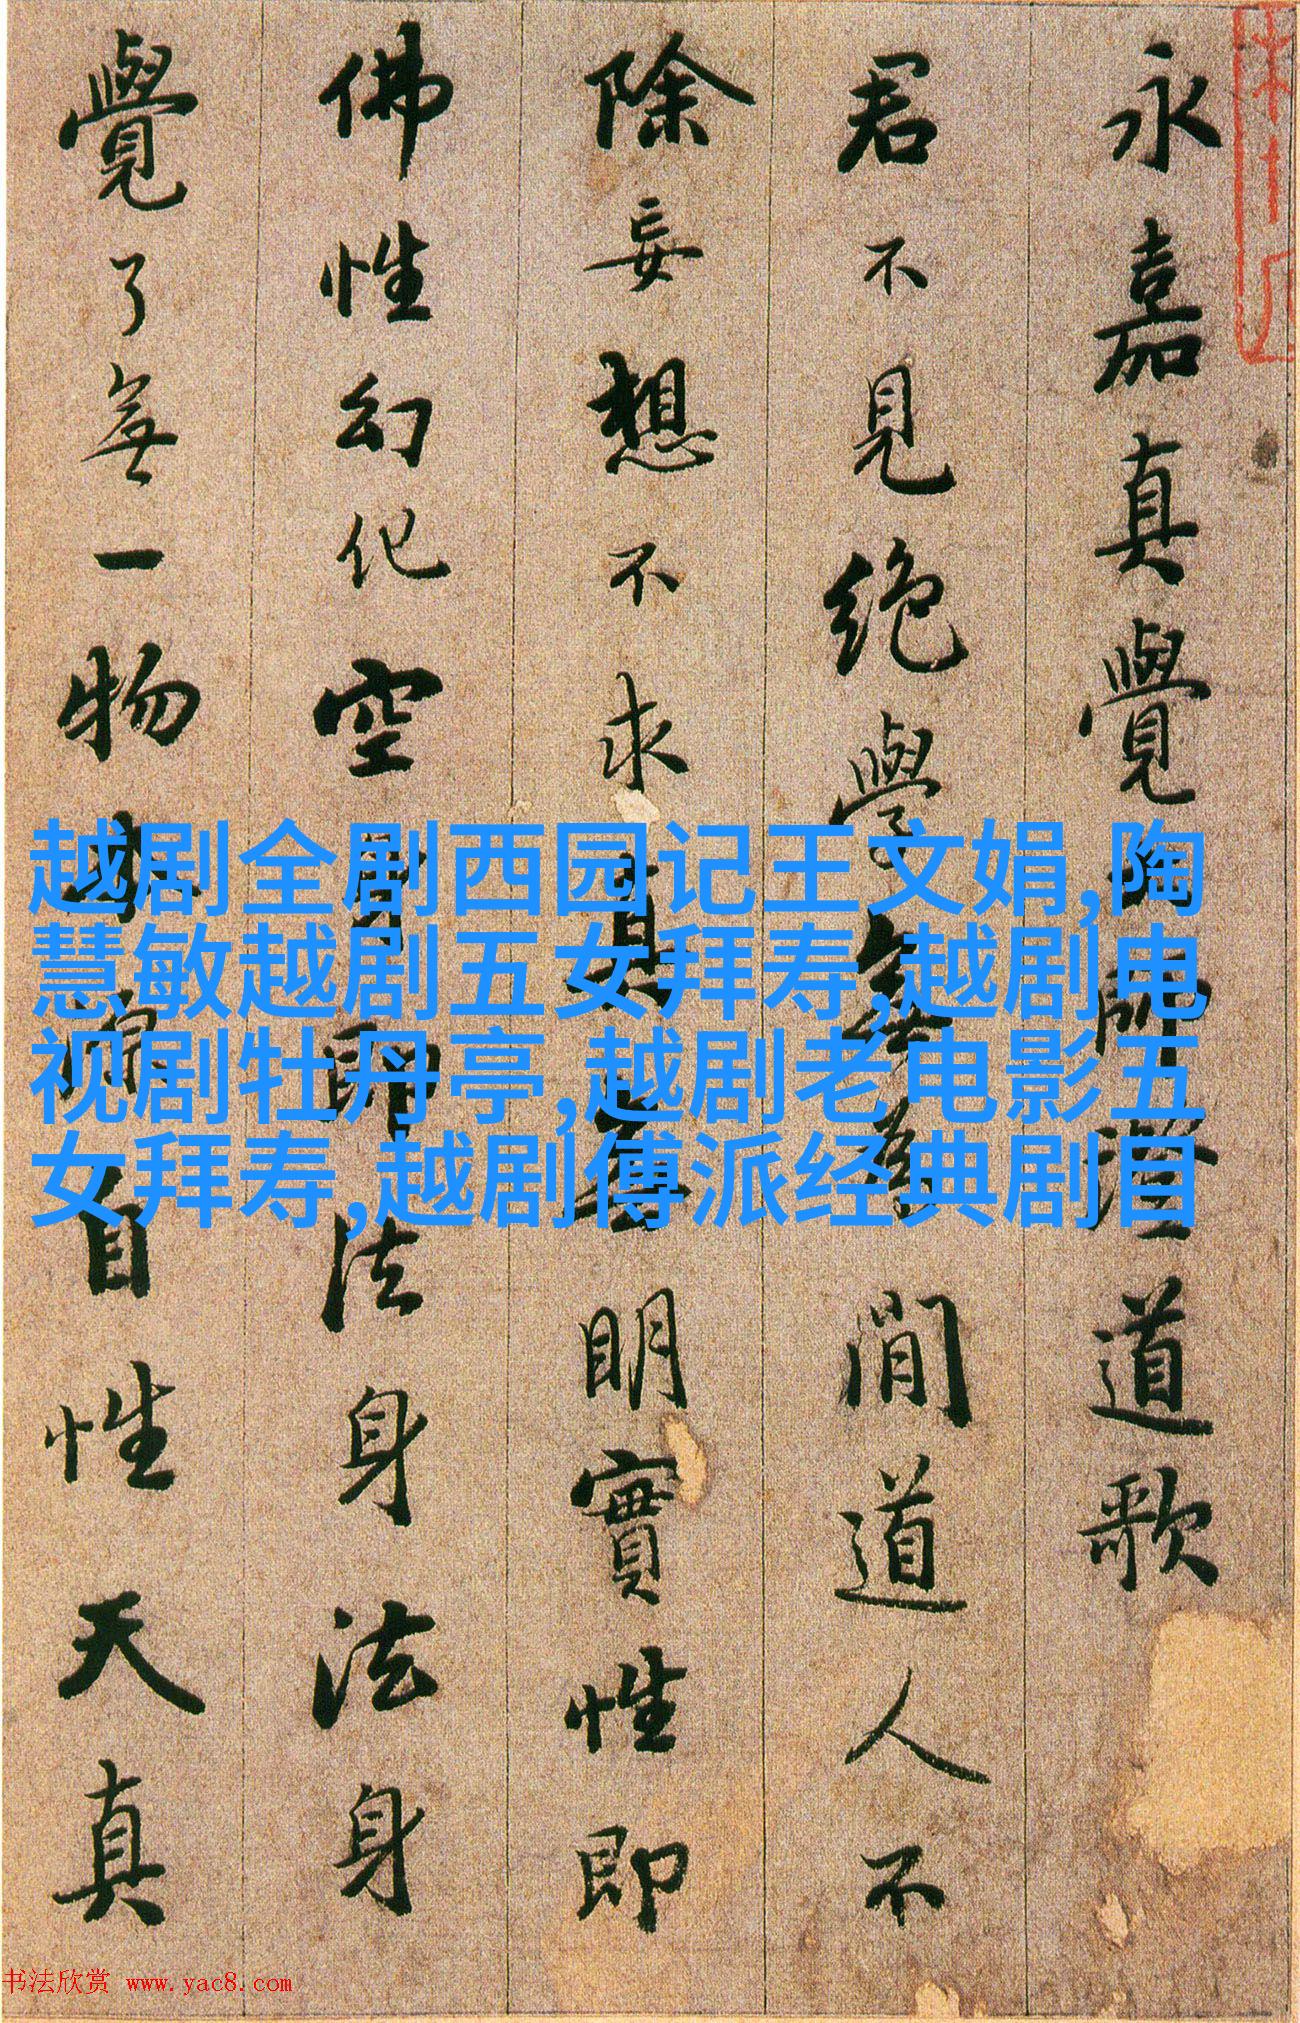 永嘉真覺師道歌
君不見絶學閒道人不
除妄想不求真明實性即
佛性幻化空身即法身法身
覺了無一物本源自性天真
越剧全剧西园记王文娟,陶
慧敏越剧五女拜寿,越剧电
视剧牡丹亭,越剧老电影五
女拜寿,越剧傅派经典剧目
书法欣赏 www.yac8.com